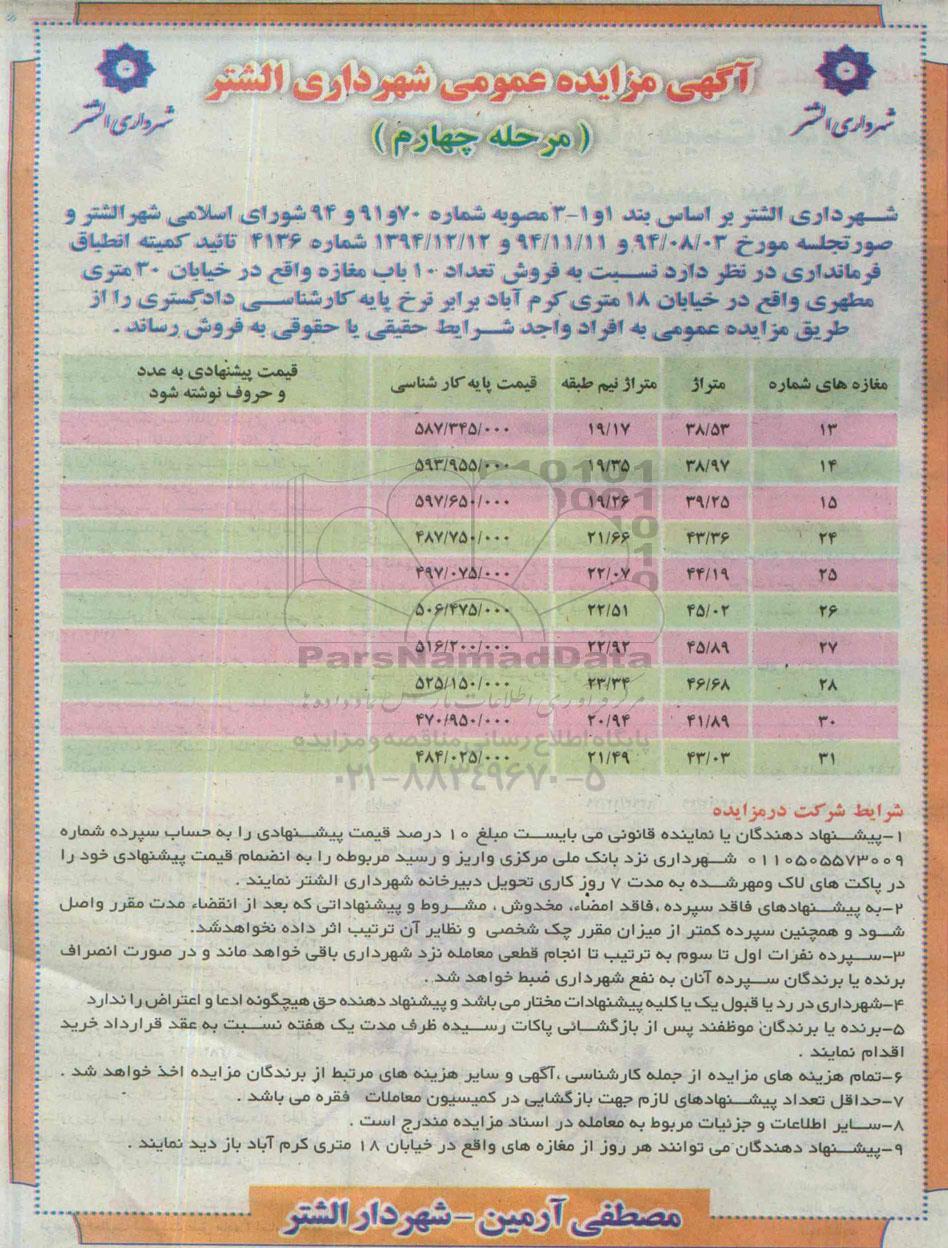 آگهی مزایده عمومی شهرداری الشتر
شهرداری الشتر
شهرداری الشتر
(مرحله چهارم)
شهرداری الشتر بر اساس بند ۱و۱-۳ مصوبه شماره ۷۰و۹۱ و ۹۴ شورای اسلامی شهر الشتر و
صورتجلسه مورخ ۹۴/۰۸/۰۳ و ۹۴/۱۱/۱۱ و ۱۳۹۴/۱۲/۱۲ شماره ۴۱۳۶ تائید کمیته انطباق
فرمانداری در نظر دارد نسبت به فروش تعداد ۱۰ باب مغازه واقع در خیابان ۳۰ متری
مطهری واقع در خیابان ۱۸ متری کرم آباد برابر نرخ پایه کارشناسی دادگستری را از
طریق مزایده عمومی به افراد واجد شرایط حقیقی یا حقوقی به فروش رساند .
مغازه های شماره متراژ متراژ نیم طبقه قیمت پایه کار شناسی قیمت پیشنهادی به عدد
و حروف نوشته شود
۱۳ ۳۸/۵۳ ۱۹/۱۷ ۵۸۷/۳۴۵/۰۰۰
۱۴ ۳۸/۹۷ ۱۹/۳۵ ۵۹۳/۹۵۵/۰۰۰
۱۵ ۳۹/۲۵ ۱۹/۲۶ ۵۹۷/۶۵۰/۰۰۰
۲۴ ۴۳/۳۶ ۲۱/۶۶ ۴۸۷/۷۵۰/۰۰۰
۲۵ ۴۴/۱۹ ۲۲/۰۷ ۴۹۷/۰۷۵/۰۰۰
۲۶ ۴۵/۰۲ ۲۲/۵۱ ۵۰۶/۴۷۵/۰۰۰
۲۷ ۴۵/۸۹ ۲۲/۹۲ ۵۱۶/۲۰۰/۰۰۰
۲۸ ۴۶/۶۸ ۲۳/۳۴ ۵۲۵/۱۵۰/۰۰۰
۳۰ ۴۱/۸۹ ۲۰/۹۴ ۴۷۰/۹۵۰/۰۰۰
۳۱ ۴۳/۰۳ ۲۱/۴۹ ۴۸۴/۰۲۵/۰۰۰
ParsNamadData
پایگاه اطلاع رسانی مناقصه و مزایده
۰۲۱-۸۸۳۴۹۶۷۰-۵
شرایط شرکت درمزایده
۱-پیشنهاد دهندگان یا نماینده قانونی می بایست مبلغ ۱۰ درصد قیمت پیشنهادی را به حساب سپرده شماره
۰۱۱۰۵۰۵۵۷۳۰۰۹ شهرداری نزد بانک ملی مرکزی واریز و رسید مربوطه را به انضمام قیمت پیشنهادی خود را
در پاکت های لاک ومهرشده به مدت ۷ روز کاری تحویل دبیرخانه شهرداری الشتر نمایند .
۲-به پیشنهادهای فاقد سپرده ،فاقد امضاء، مخدوش ، مشروط و پیشنهاداتی که بعد از انقضاء مدت مقرر واصل
شود و همچنین سپرده کمتر از میزان مقرر چک شخصی و نظایر آن ترتیب اثر داده نخواهدشد.
۳-سپرده نفرات اول تا سوم به ترتیب تا انجام قطعی معامله نزد شهرداری باقی خواهد ماند و در صورت انصراف
برنده یا برندگان سپرده آنان به نفع شهرداری ضبط خواهد شد .
۴-شهرداری در رد یا قبول یک یا کلیه پیشنهادات مختار می باشد و پیشنهاد دهنده حق هیچگونه ادعا و اعتراض را ندارد
۵-برنده یا برندگان موظفند پس از بازگشائی پاکات رسیده ظرف مدت یک هفته نسبت به عقد قرارداد خرید
اقدام نمایند .
۶-تمام هزینه های مزایده از جمله کارشناسی ،آگهی و سایر هزینه های مرتبط از برندگان مزایده اخذ خواهد شد .
۷-حداقل تعداد پیشنهادهای لازم جهت بازگشایی در کمیسیون معاملات فقره می باشد .
۸-سایر اطلاعات و جزئیات مربوط به معامله در اسناد مزایده مندرج است .
۹-پیشنهاد دهندگان می توانند هر روز از مغازه های واقع در خیابان ۱۸ متری کرم آباد باز دید نمایند .
مصطفی آرمین -شهردار الشتر